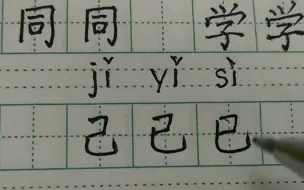 同 同 学 学
jǐ yǐ sì
己 已 巳